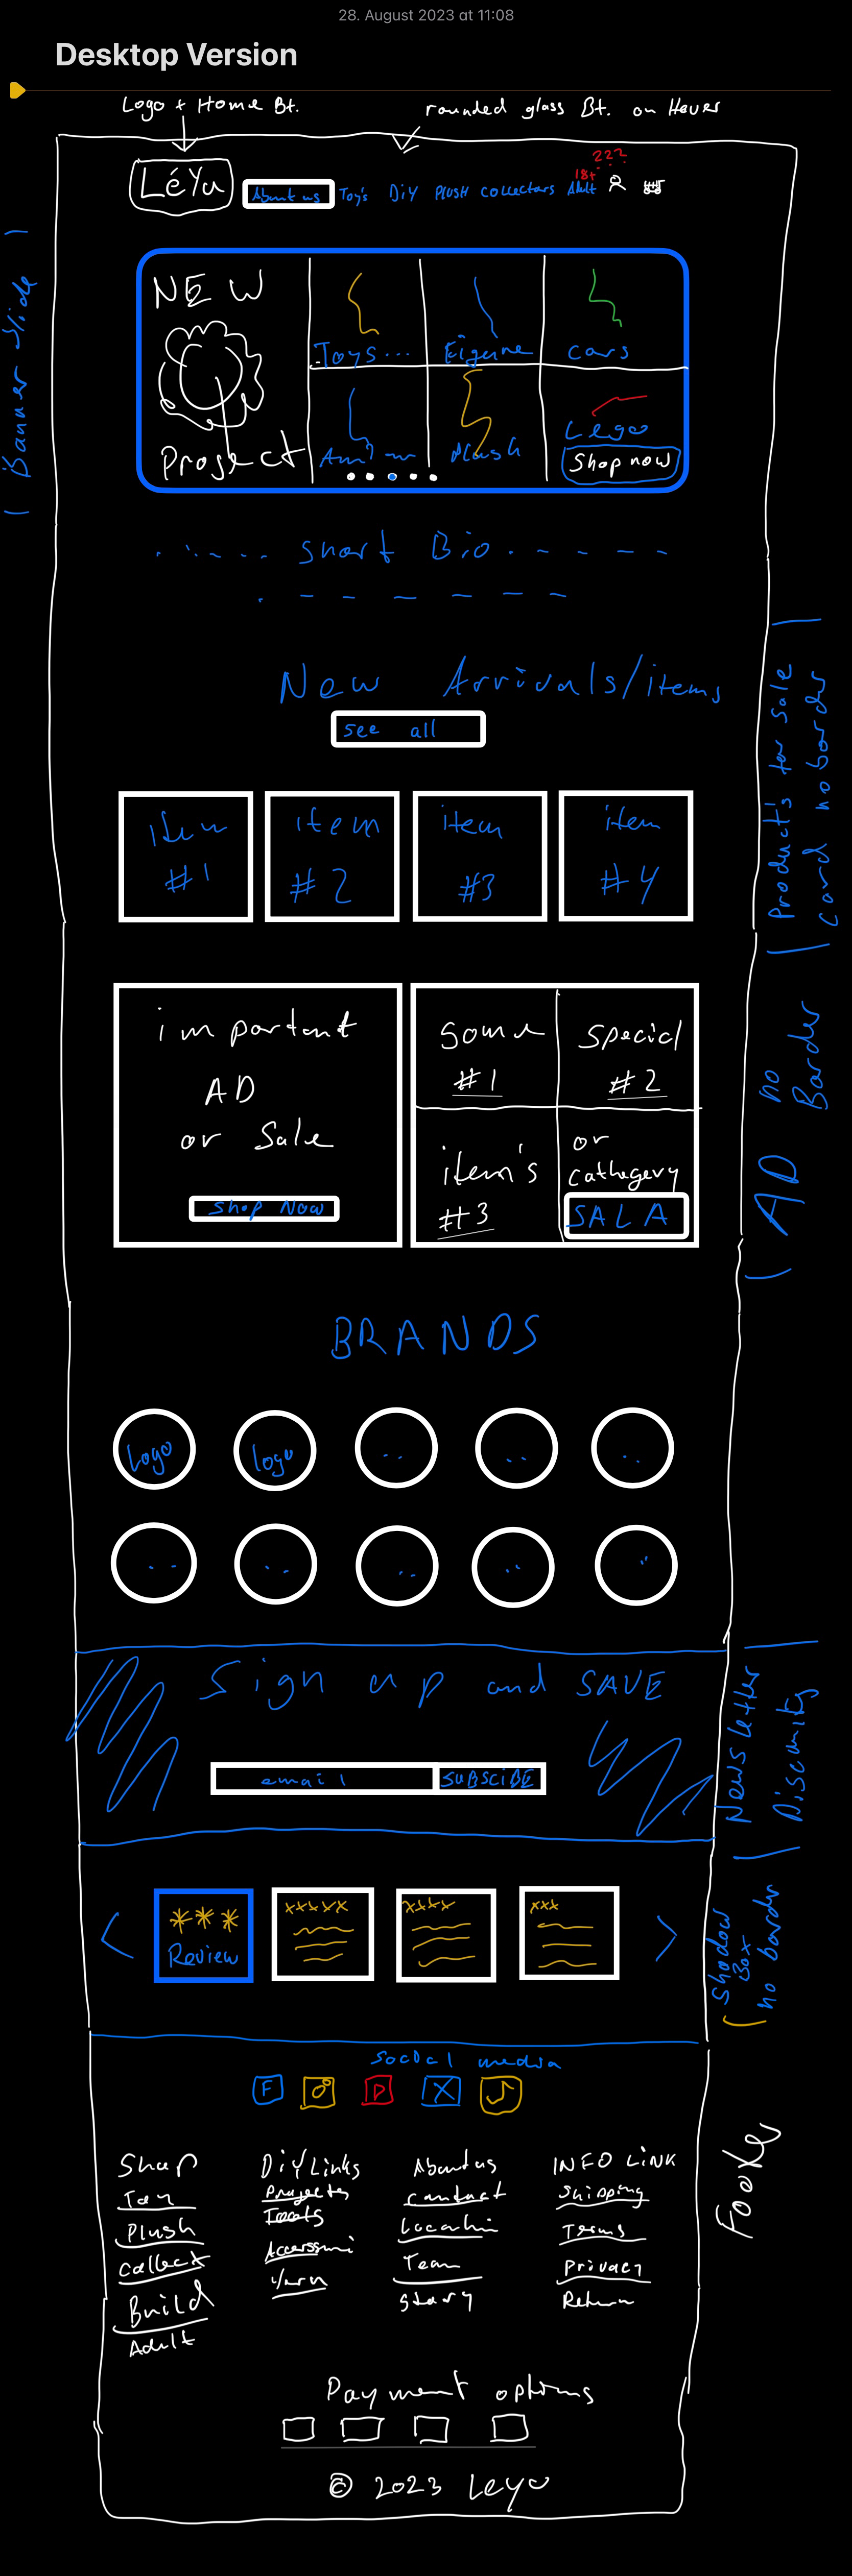 28. August 2023 at 11:08
Desktop Version
Logo + Home Bt.
rounded glass Bt. on Hover
LéYu
About us Toy's DiY PLUSH collectors Adult
18+
???
| Banner slide |
NEW
Project
Toys...
Figurine
cars
Plush
Lego
Shop now
short Bio
New Arrivals/items
see all
item
#1
item
#2
item
#3
item
#4
Products for sale
card no border
important
AD
or Sale
Shop Now
some
#1
special
#2
item's
#3
or
cathegery
SALA
AD no
Border
BRANDS
Logo
logo
Sign up and SAVE
email
SUBSCIBE
News letter
< >
Review
xxxxx
xxxx
xxx
Shadow
Box
no border
social media
F
X
Footer
Shop
Toy
Plush
Collect
Build
Adult
DiY Links
Projectes
Tools
Yarn
About us
Contact
Team
Story
INFO LINK
Shipping
Terms
Privacy
Return
Payment options
© 2023 Leyu